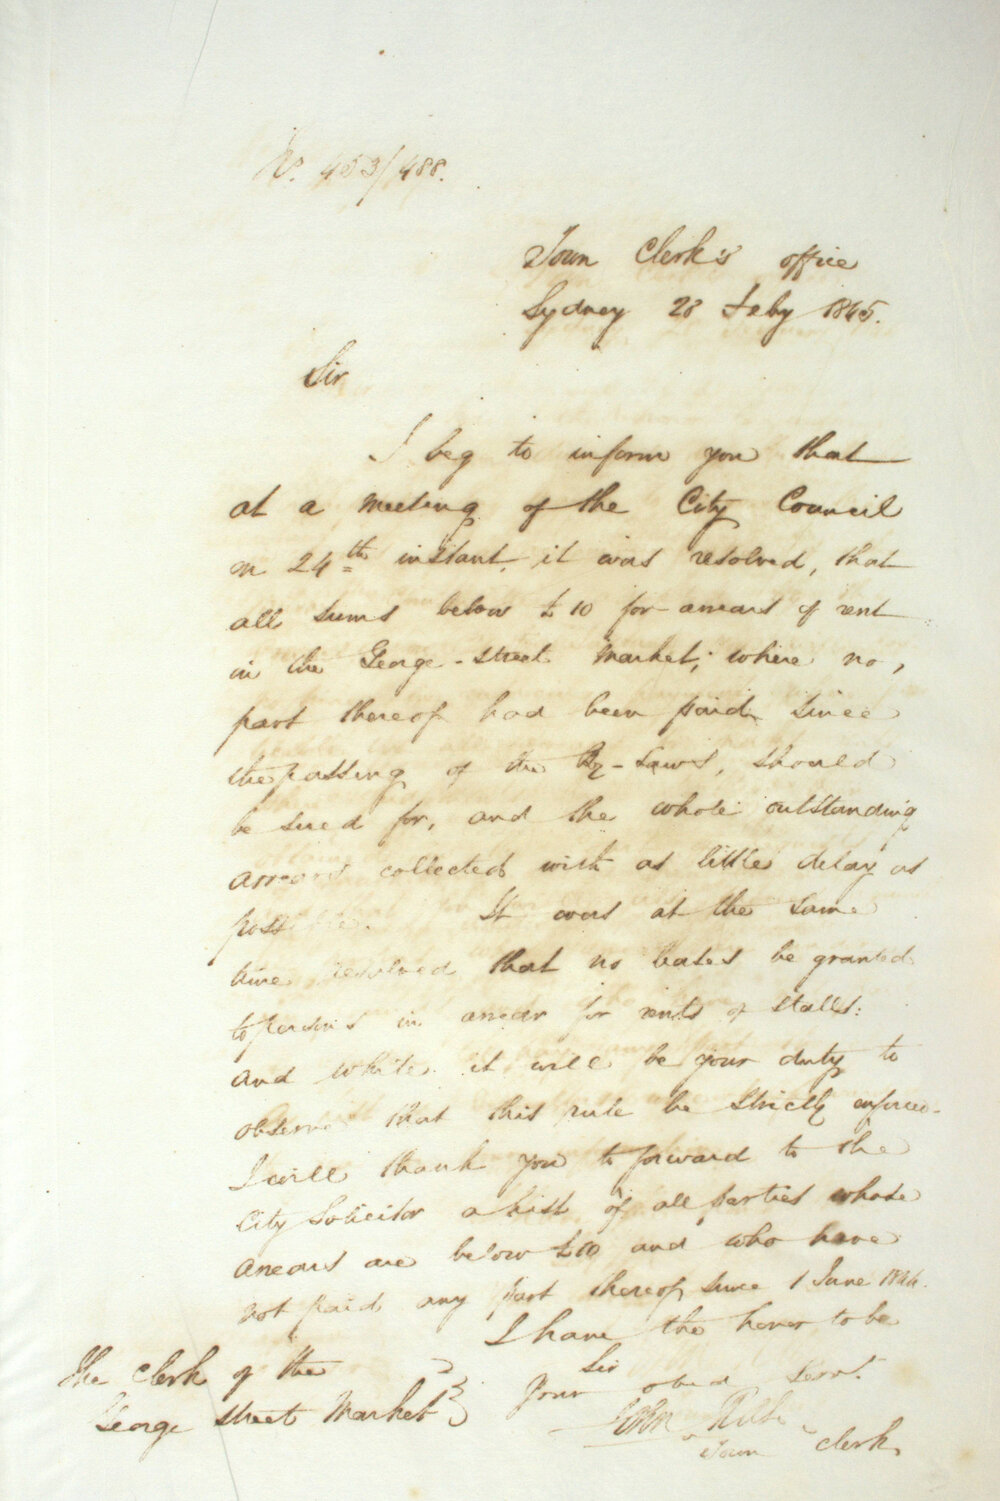 No. 453/488.
Town Clerk's office
Sydney 28 Feby 1845.
Sir
I beg to inform you that
at a meeting of the City Council
on 24th instant, it was resolved, that
all sums below £10 for arrears of rent
in the George-street Market; where no,
part thereof had been paid since
the passing of the By-Laws, should
be sued for, and the whole outstanding
arrears collected with as little delay as
possible. It was at the same
time resolved that no leases be granted
to persons in arrear for rents of stalls:
and while it will be your duty to
observe that this rule be strictly enforced.
I will thank you to forward to the
City Solicitor a List of all parties whose
arrears are below £10 and who have
not paid any part thereof since 1 June 1844.
I have the honor to be
Sir
Your obed Servt.
The Clerk of the
George Street Market
John
Town Clerk